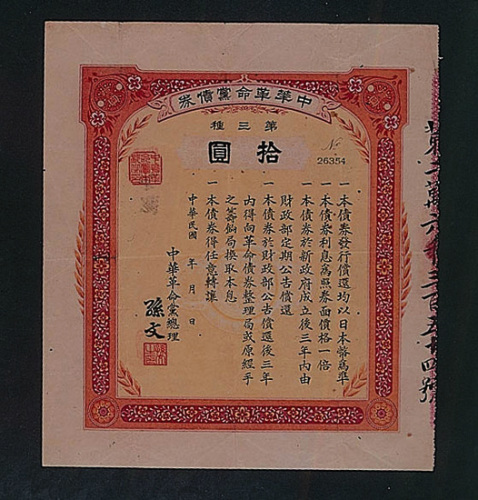 中華革命黨債券
第三種
拾圓
No
26354
一本債券發行償還均以日本幣爲準
一本債券利息爲照券面價格一倍
一本債券於新政府成立後三年內由
財政部定期公告償還
一本債券於財政部公告償還後三年
內得向革命債券整理局或原經手
之籌餉局換取本息
一本債券得任意轉讓
中華民國 年 月 日
中華革命黨總理
孫文